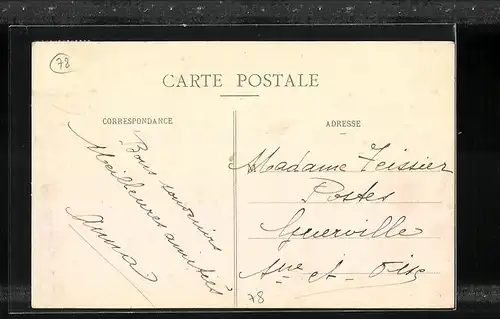 78
CARTE POSTALE
CORRESPONDANCE
Bons souvenirs
Meilleures amitiés
Anna
ADRESSE
Madame Teissier
Postes
Guerville
Sne et Oise
78